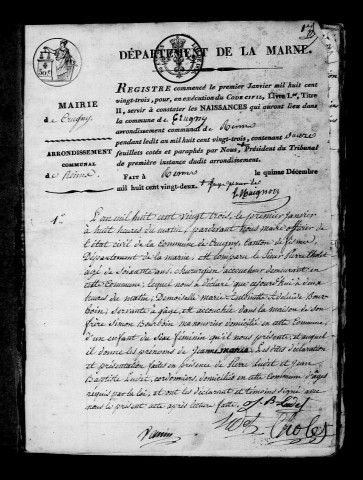 DÉPARTEMENT DE LA MARNE.
MAIRIE
de Crugny.
ARRONDISSEMENT
COMMUNAL
de Reims
REGISTRE commencé le premier Janvier mil huit cent
vingt-trois, pour, en exécution du CODE CIVIL, Livre I.er, Titre
II, servir à constater les NAISSANCES qui auront lieu dans
la commune de Crugny
arrondissement communal de Reims
pendant ledit an mil huit cent vingt-trois, contenant
feuillets cotés et paraphés par Nous, Président du Tribunal
de première instance dudit arrondissement.
FAIT à Reims le quinze Décembre
mil huit cent vingt-deux.
1.er
L'an mil huit cent vingt trois, le premier janvier
à huit heures du matin, pardevant nous maire officier de
l'état civil de la Commune de Crugny, Canton de fisme
Département de la marne, est comparu le Sieur pierre
âgé de Soixante ans, chirurgien accoucheur demeurant en
cette Commune, lequel nous a déclaré que aujourd'hui à deux
heures du matin, Demoiselle marie Antoinette Adelaïde Bour-
boin, servante à gage, est accouchée dans la maison de son
frère Simon Bourboin manouvrier domicilié en cette Commune,
d'un enfant du Sexe féminin qu'il nous présente, et auquel
il donne les prénoms de Jeanne maria. Les dites déclaration
et présentation faites en présence de pierre Ludet et Jean
Baptiste Ludet, cordonniers, domiciliés en cette Commune d'âges
requis par la loi, et ont les déclarant et témoins signé avec
nous le présent acte après lecture faite. J. B. Ludet